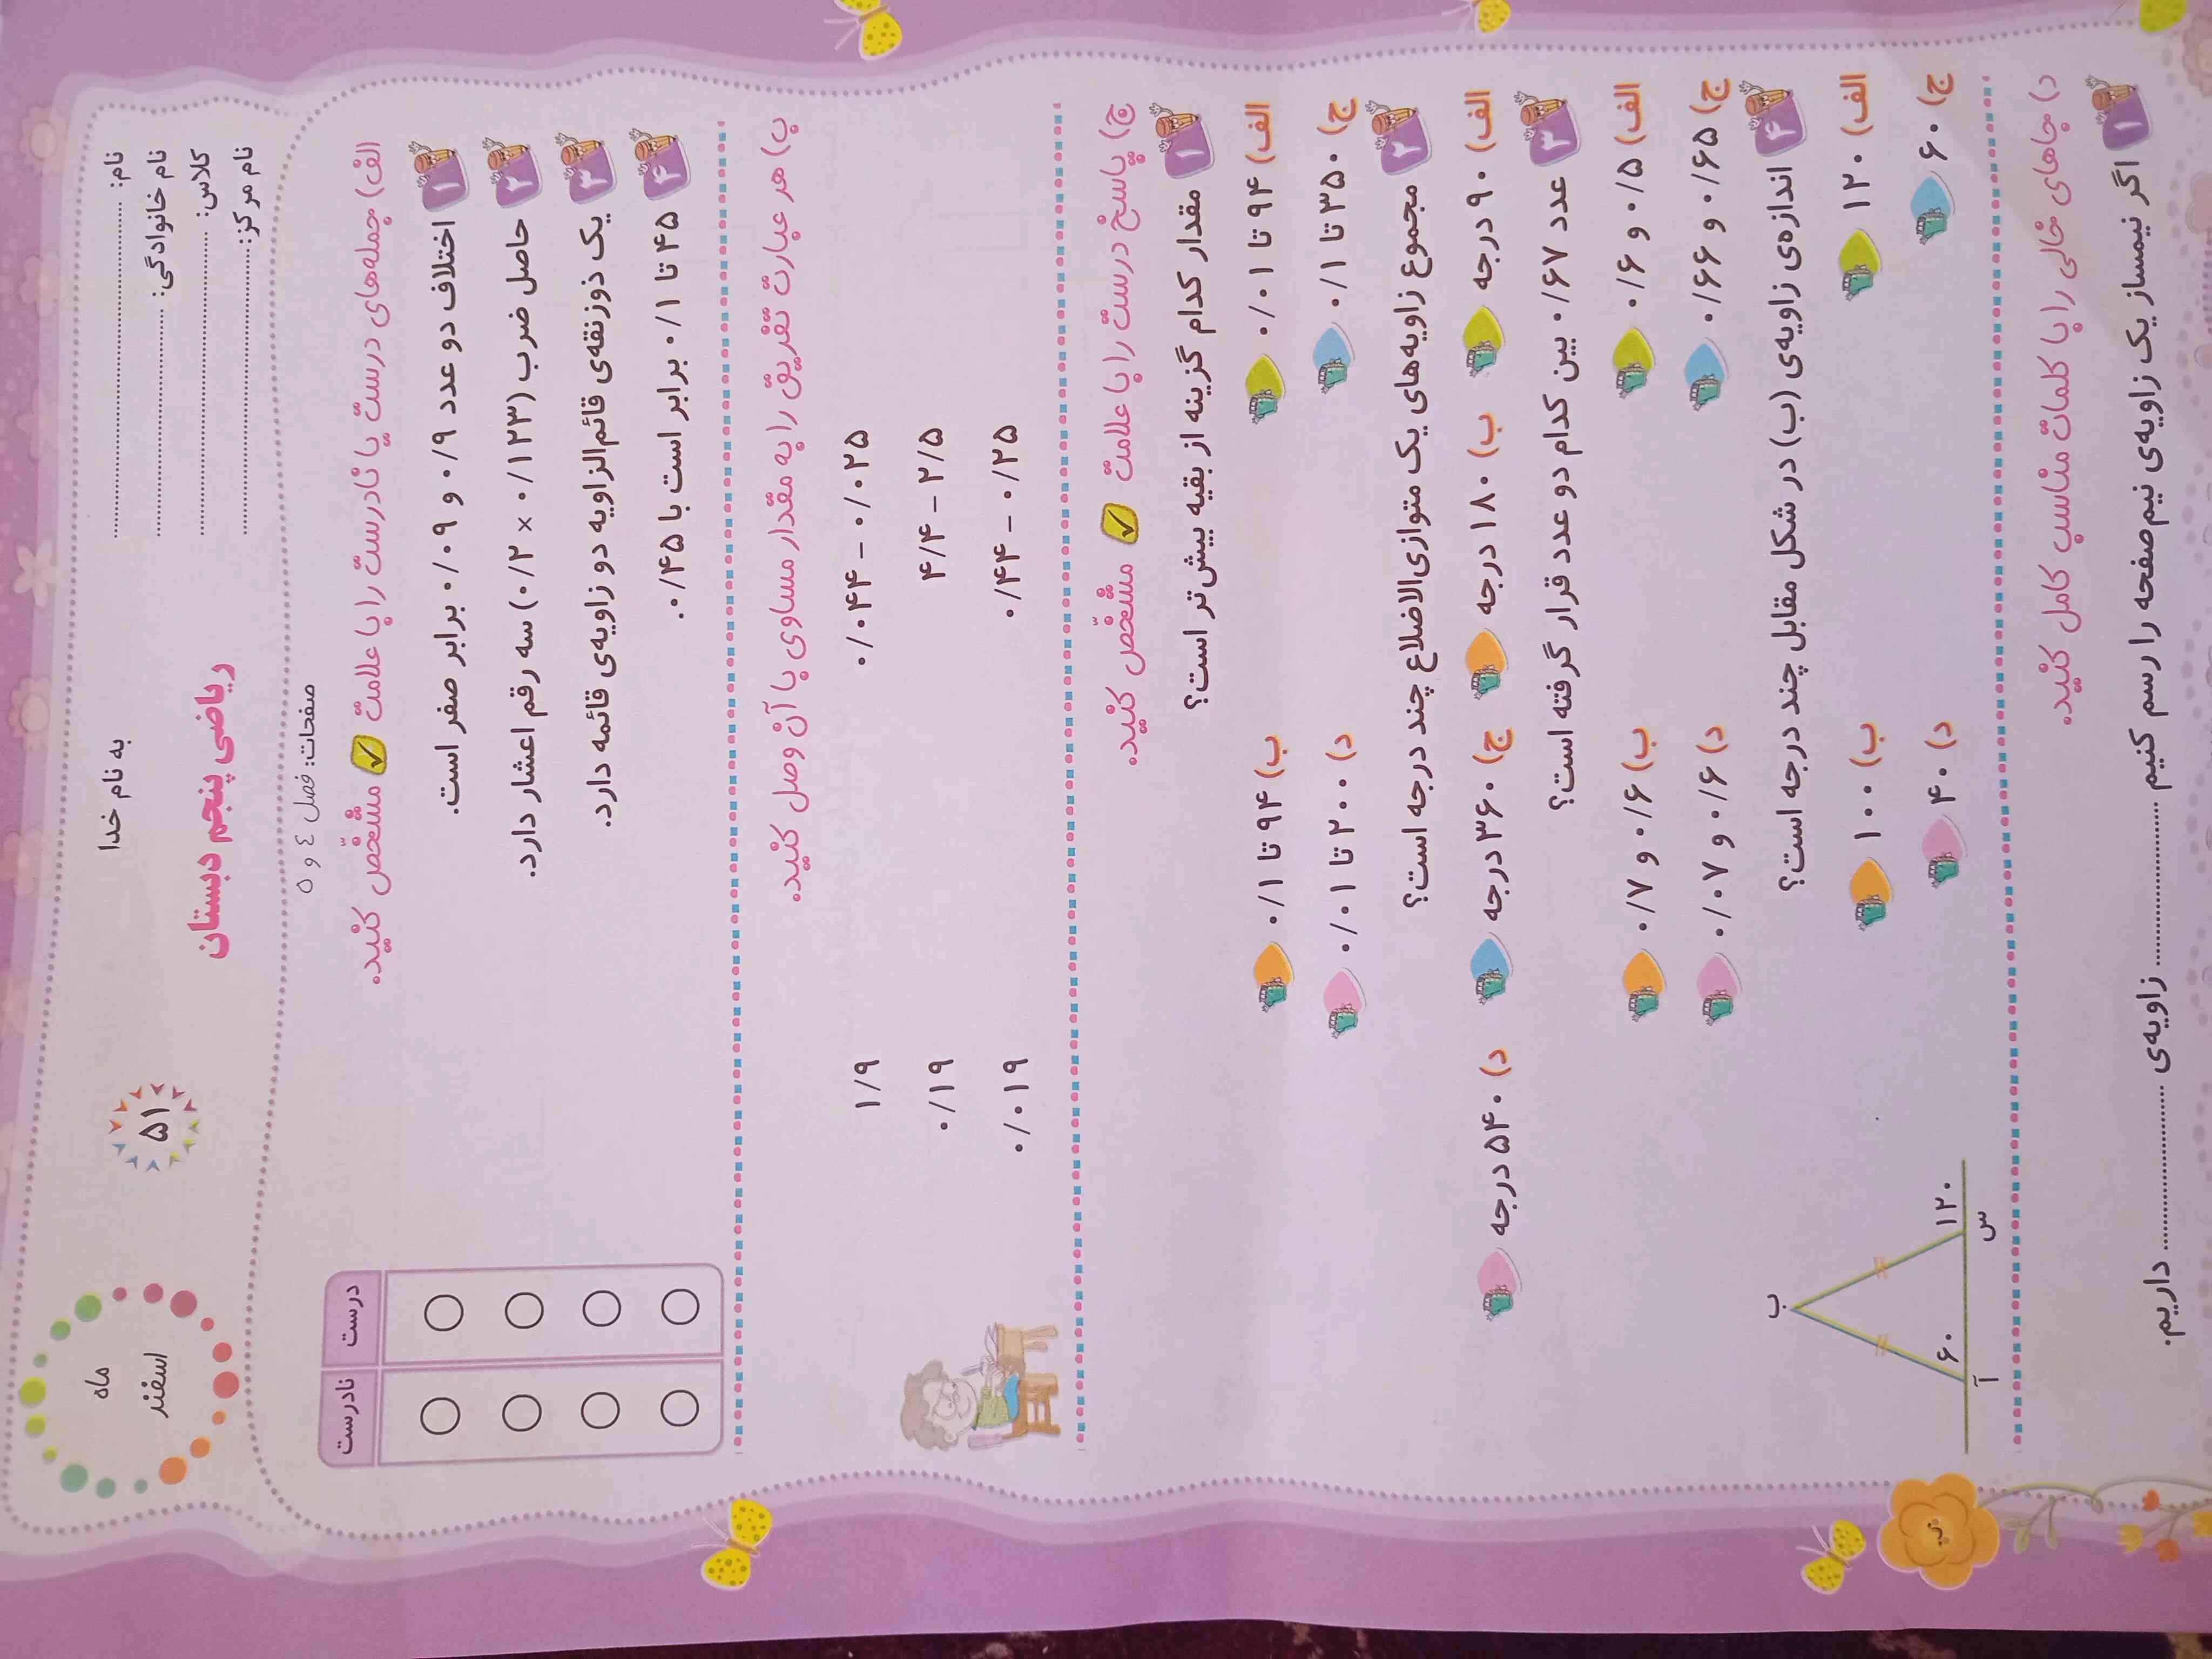 به نام خدا
نام:
نام خانوادگی:
کلاس:
نام مرکز:
ریاضی پنجم دبستان
۵۱
ماه
اسفند
صفحات: فصل ٤ و ٥
الف) جمله‌های درست یا نادرست را با علامت ✓ مشخّص کنید.
درست نادرست
۱ اختلاف دو عدد ۰/۹ و ۰/۰۹ برابر صفر است.
۲ حاصل ضرب (۰/۱۲۳ × ۰/۲) سه رقم اعشار دارد.
۳ یک ذوزنقه‌ی قائم‌الزاویه دو زاویه‌ی قائمه دارد.
۴ ۴۵ تا ۰/۱ برابر است با ۰/۴۵.
ب) هر عبارت تفریق را به مقدار مساوی با آن وصل کنید.
۰/۰۴۴ – ۰/۰۲۵ ۱/۹
۴/۴ – ۲/۵ ۰/۱۹
۰/۴۴ – ۰/۲۵ ۰/۰۱۹
ج) پاسخ درست را با علامت ✓ مشخّص کنید.
۱ مقدار کدام گزینه از بقیه بیش‌تر است؟
الف) ۹۴ تا ۰/۰۱ ب) ۹۴ تا ۰/۱
ج) ۳۵۰ تا ۰/۱ د) ۲۰۰ تا ۰/۰۱
۲ مجموع زاویه‌های یک متوازی‌الاضلاع چند درجه است؟
الف) ۹۰ درجه ب) ۱۸۰ درجه ج) ۳۶۰ درجه د) ۵۴۰ درجه
۳ عدد ۰/۶۷ بین کدام دو عدد قرار گرفته است؟
الف) ۰/۵ و ۰/۶ ب) ۰/۶ و ۰/۷
ج) ۰/۶۵ و ۰/۶۶ د) ۰/۶ و ۰/۰۷
۴ اندازه‌ی زاویه‌ی (ب) در شکل مقابل چند درجه است؟
الف) ۱۲۰ ب) ۱۰۰
ج) ۶۰ د) ۴۰
ب
۶۰ ۱۲۰
آ س
د) جاهای خالی را با کلمات مناسب کامل کنید.
۱ اگر نیمساز یک زاویه‌ی نیم‌صفحه را رسم کنیم .................... زاویه‌ی .................... داریم.